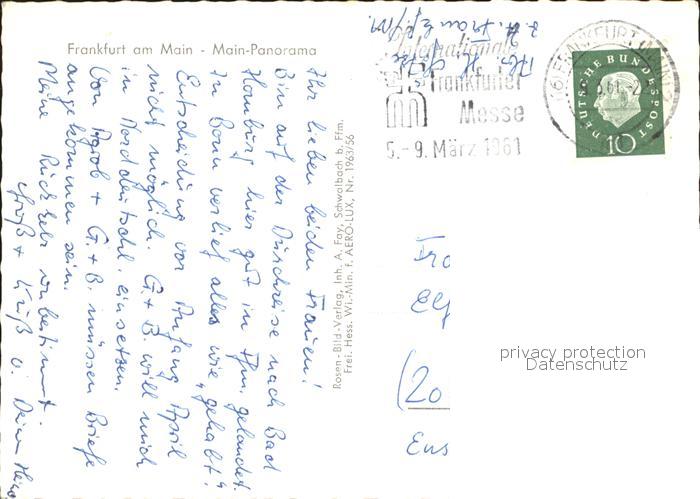 Frankfurt am Main - Main-Panorama
Ihr lieben beiden Frauen!
Bin auf der Durchreise nach Bad
Homburg hier gut in Ffm. gelandet.
In Bonn verlief alles wie "gehabt".
Entscheidung vor Anfang April
nicht möglich. G. + B. will mich
in Norddeutschl. einsetzen.
Von + G. + B. müssen Briefe
angekommen sein.
Meine Rückkehr unbestimmt.
Gruß + Kuß v. Deinem
Rosen-Bild-Verlag, Inh. A. Fay, Schwalbach b. Ffm.
Frei. Hess. Wi.-Min. f. AERO-LUX, Nr. 1963/56
Internationale
Frankfurter
Messe
5.-9. März 1961
FRANKFURT
61.-2
DEUTSCHE BUNDESPOST
10
Fra
(20
privacy protection
Datenschutz